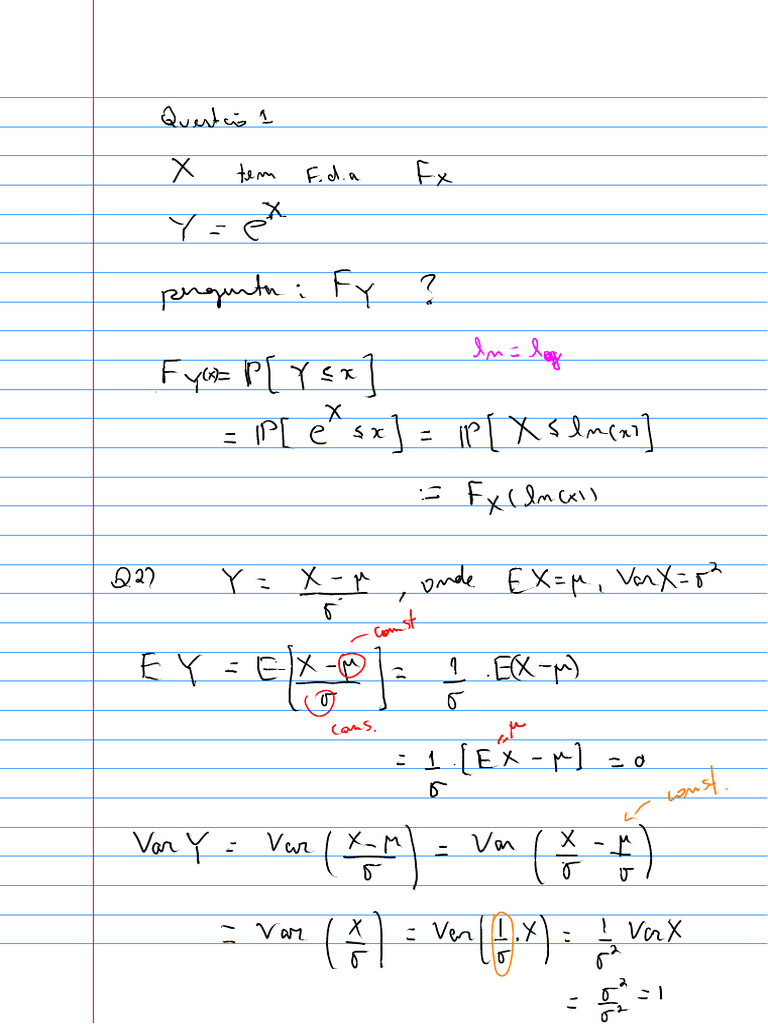 Questão 1
X tem F.d.a F_X
Y = e^X
pergunta: F_Y ?
ln = log
F_Y(x) = P[Y ≤ x]
= P[e^X ≤ x] = P[X ≤ ln(x)]
= F_X(ln(x))
Q.2) Y = (X - μ)/σ, onde EX = μ, Var X = σ²
const
E Y = E[(X - μ)/σ] = 1/σ . E(X - μ)
cons.
= μ
= 1/σ . [EX - μ] = 0
const.
Var Y = Var((X - μ)/σ) = Var(X/σ - μ/σ)
= Var(X/σ) = Var(1/σ . X) = 1/σ² Var X
= σ²/σ² = 1